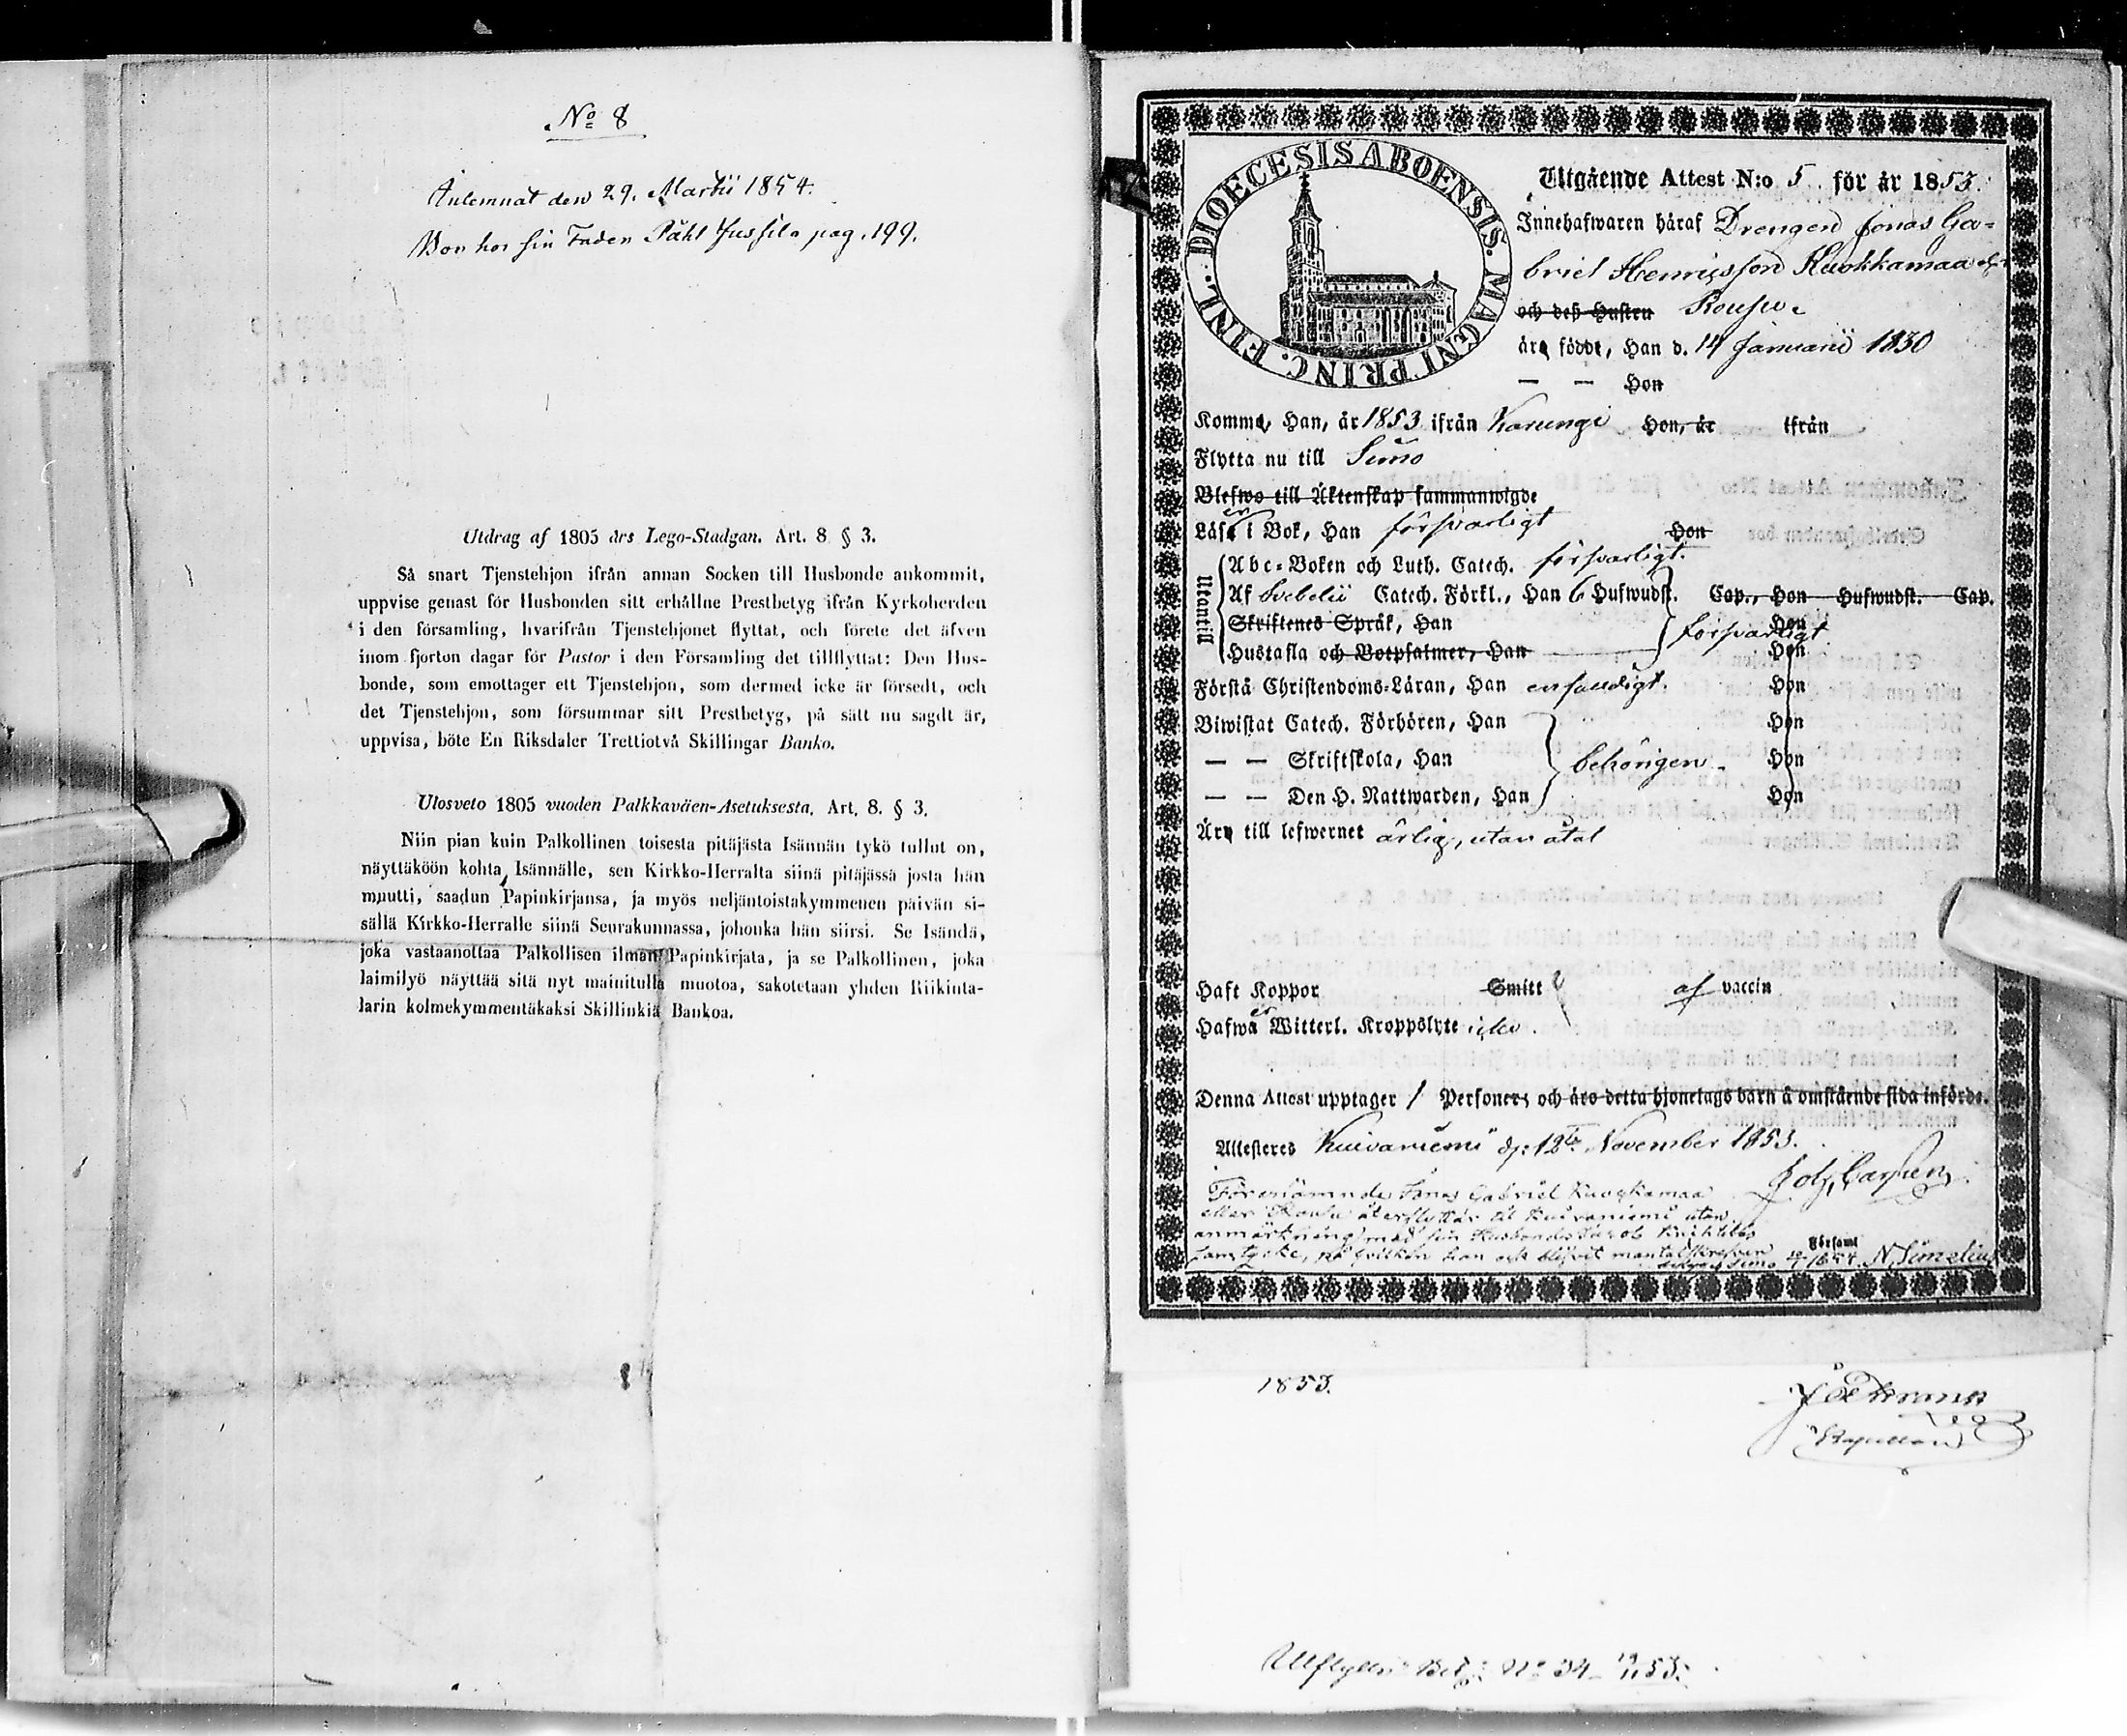 No 8
Aulemnat den 29. Martii 1854.
Bor hos sin Fader Påhl Jussila pag. 199.
Utdrag af 1805 års Lego-Stadgan. Art. 8 § 3.
Så snart Tjenstehjon ifrån annan Socken till Husbonde ankommit,
uppvise genast för Husbonden sitt erhållne Prestbetyg ifrån Kyrkoherden
i den församling, hvarifrån Tjenstehjonet flyttat, och förete det äfven
inom fjorton dagar för Pastor i den Församling det tillflyttat: Den Hus-
bonde, som emottager ett Tjenstehjon, som dermed icke är försedt, och
det Tjenstehjon, som försummar sitt Prestbetyg, på sätt nu sagdt är,
uppvisa, böte En Riksdaler Trettiotvå Skillingar Banko.
Ulosveto 1805 vuoden Palkkaväen-Asetuksesta, Art. 8. § 3.
Niin pian kuin Palkollinen toisesta pitäjästa Isännän tykö tullut on,
näyttäköön kohta Isännälle, sen Kirkko-Herralta siinä pitäjässä josta hän
muutti, saadun Papinkirjansa, ja myös neljäntoistakymmenen päivän si-
sällä Kirkko-Herralle siinä Seurakunnassa, johonka hän siirsi. Se Isändä,
joka vastaanottaa Palkollisen ilman Papinkirjata, ja se Palkollinen, joka
laimilyö näyttää sitä nyt mainitulla muotoa, sakotetaan yhden Riikinta-
larin kolmekymmentäkaksi Skillinkiä Bankoa.
DIOECESIS ABOENSIS. MAGNI PRINC. FINL.
Utgående Attest N:o 5 för år 1853.
Innehafwaren häraf Drengen Jonas Ga-
briel Henriksson Kuokkamaa
och deß Hustru Rousu
äro födde, Han d. 14 Januarii 1830
— — Hon
Komma, Han, år 1853 ifrån Karungi Hon, år ifrån
Flytta nu till Simo
Blefwo till Äktenskap sammanwigde
Läsa er i Bok, Han försvarligt Hon
Utantill
Abc-Boken och Luth. Catech. försvarligt.
Af Svebelii Catech. Förkl., Han 6 Hufwudst. Cap., Hon Hufwudst. Cap.
Skriftenes Språk, Han försvarligt Hon
Hustafla och Botpsalmer, Han Hon
Förstå Christendoms-Läran, Han enfaldigt. Hon
Biwistat Catech. Förhören, Han Hon
— — Skriftskola, Han behörigen Hon
— — Den H. Nattwarden, Han Hon
Äro till lefwernet ärlig, utan åtal
Haft Koppor Smitt af vaccin
Hafwa er Witterl. Kroppslyte icke.
Denna Attest upptager 1 Personer, och äro detta hjonelags barn å omstående sida införde.
Attesteres Kuivaniemi d. 12te November 1853.
Joh. Carlsen
Förenämnde Jonas Gabriel Kuokkamaa
eller Rousu återflyttar till Kuivaniemi utan
anmärkning med sin Husbondes
samtycke, på hvilken han och blifvit mantalskrefven
Simo 1854 N. Simelius
1853.
Kapellan
Utflyttn. Bet. No 34 19/11 53.